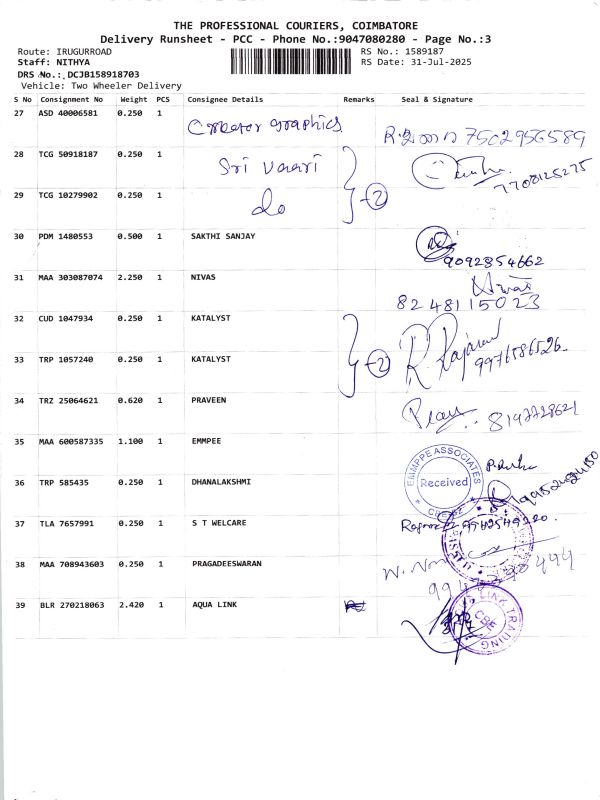 THE PROFESSIONAL COURIERS, COIMBATORE
Delivery Runsheet - PCC - Phone No.:9047080280 - Page No.:3
Route: IRUGURROAD RS No.: 1589187
Staff: NITHYA RS Date: 31-Jul-2025
DRS No.: DCJB158918703
Vehicle: Two Wheeler Delivery
S No Consignment No Weight PCS Consignee Details Remarks Seal & Signature
27 ASD 40006581 0.250 1 graphics 7502956589
28 TCG 50918187 0.250 1 Sri Vaari
7708125275
29 TCG 10279902 0.250 1 do 2
30 PDM 1480553 0.500 1 SAKTHI SANJAY
9092854662
31 MAA 303087074 2.250 1 NIVAS
8248115023
32 CUD 1047934 0.250 1 KATALYST
R. Rajaram
9976586526
33 TRP 1057240 0.250 1 KATALYST 2
34 TRZ 25064621 0.620 1 PRAVEEN
8197728621
35 MAA 600587335 1.100 1 EMMPEE
EMMPPE ASSOCIATES
Received
36 TRP 585435 0.250 1 DHANALAKSHMI
37 TLA 7657991 0.250 1 S T WELCARE
38 MAA 708943603 0.250 1 PRAGADEESWARAN
39 BLR 270218063 2.420 1 AQUA LINK
LINK TRADING
CBE